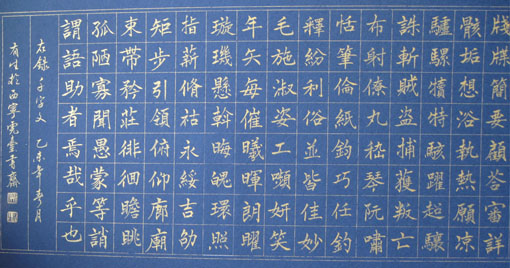 牋牒簡要顧答審詳
骸垢想浴執熱願凉
驢騾犢特駭躍超驤
誅斬賊盜捕獲叛亡
布射僚丸嵇琴阮嘯
恬筆倫紙鈞巧任釣
釋紛利俗並皆佳妙
毛施淑姿工嚬妍笑
年矢每催曦暉朗曜
璇璣懸斡晦魄環照
指薪脩祜永綏吉劭
矩步引領俯仰廊廟
束帶矜莊徘徊瞻眺
孤陋寡聞愚蒙等誚
謂語助者焉哉乎也
右錄千字文 乙未年春月
於西寧臺書齋